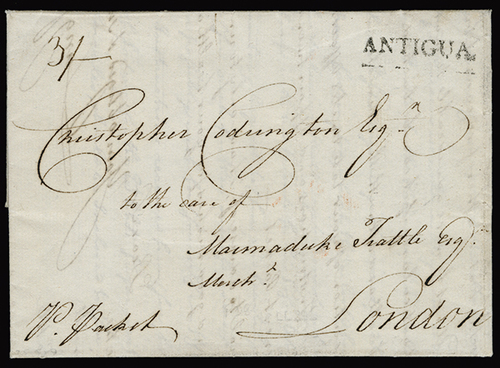 3/-
ANTIGUA
Christopher Codrington Esqr
to the care of
Marmaduke Trattle Esqr.
Mercht.
P. Packet
London